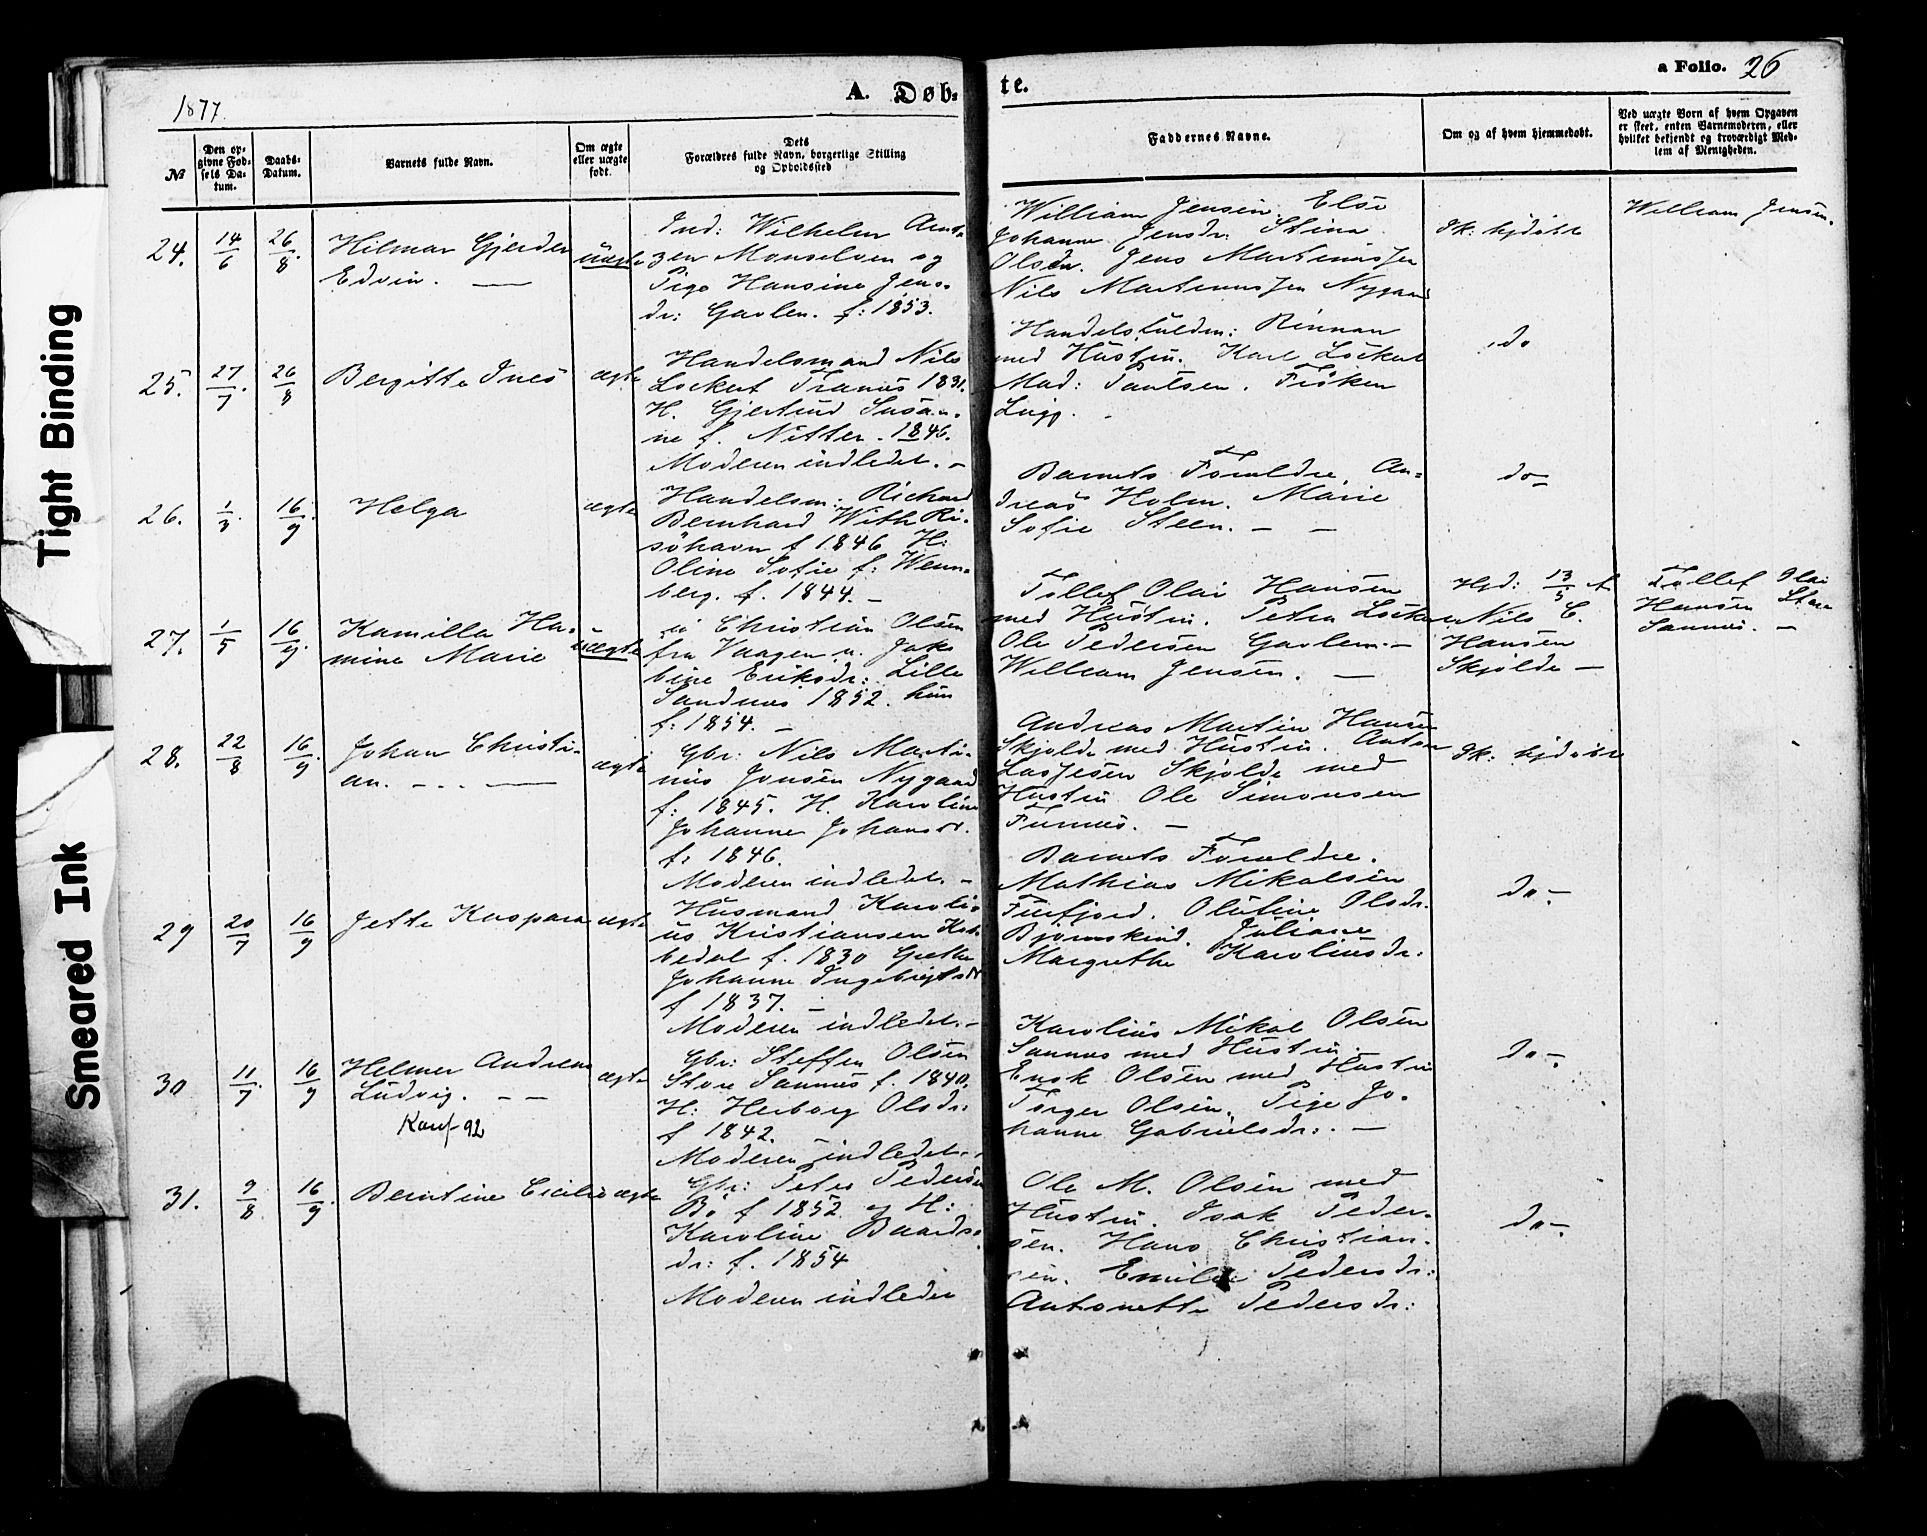 Tight Binding
Smeared Ink
1877.
A. Døb-
te.
a Folio. 26
№
Den op-
givne Fød-
sels Da-
tum.
Daabs-
Datum.
Barnets fulde Navn.
Om ægte
eller uægte
født.
Dets
Forældres fulde Navn, borgerlige Stilling
og Opholdssted
Faddernes Navne.
Om og af hvem hjemmedøbt.
Ved uægte Børn af hvem Opgaven
er skeet, enten Barnemoderen, eller
hvilket bekjendt og troværdigt Med-
lem af Menigheden.
24.
14/6
26/8
Hilmar Gjerder
Edvin. —
uægte
Ind: Wilhelm Arnt-
zen Monselven og
Pige Hansine Jens-
dr: Gavlen. f: 1853.
William Jensen. Else
Johanne Jensdr. Stina
Olsdr. Jens Martinussen
Nils Martinussen Nygaard
Ik: hjdøbt
William Jensen.
25.
27/7
26/8
Bergitte Ines
ægte
Handelsmand Nils
Lockert Tranøs 1831.
H. Gjertrud Susan-
ne f. Nitter. 1846.
Moderen indledet. –
Handelsfuldm: Rinnan
med Hustru. Karl Lockert
Mad: Paulsen. Frøken
do
26.
1/3
16/9
Helga
ægte
Handelsm: Richard
Bernhard With Ri-
söhavn f 1846 H:
Oline Sofie f: Wenn-
berg. f. 1844. –
Barnets Forældre. An-
dreas Holm. Marie
Sofie Steen. – –
do–
27.
1/5
16/9
Kamilla Ha-
mine Marie
uægte
Christian Olsen
fra Vaagen u. Jako
bine Eriksdr: Lille
Sandnes 1852. hun
f: 1854. –
Tollef Olai Hansen
med Hustru. Petra Locker
Ole Pedersen Gavlen. –
William Jensen. —
Hjd: 13/5 af
Nils C.
Hansen
Skjolde –
Tollef Olai
Hansen Store
Sannes. –
28.
22/8
16/9
Johan Christi-
an. – . . —
ægte
Gbr: Nils Marti-
nus Jensen Nygaard
f: 1845. H. Karoline
Johanne Johansdr.
f: 1846.
Moderen indledet. –
Andreas Martin Hansen
Skjolde med Hustru. Anton
Lassesen Skjolde med
Hustru Ole Simonsen
Furnes. –
Ik: hjdøbt
29
20/7
16/9
Jette Kaspara
ægte
Husmand Karoli-
us Kristiansen Kob-
bedal f. 1830 Grethe
Johanne Ingebrigtsdr
f 1837. –
Moderen indledet. –
Barnets Forældre.
Mathias Mikalsen
Furfjord. Olufine Olsdr.
Bjørnskind. Juliane
Margrethe Karoliusdr.
do –
30
11/7
16/9
Helmer Andreas
Ludvig. – –
Konf- 92
ægte
Gbr: Steffen Olsen
Store Sannes f. 1840.
H: Herborg Olsdr:
f 1842. –
Moderen indledet. –
Karolius Mikal Olsen
Sannes med Hustru.
Enok Olsen med Hustru
Torger Olsen. Pige Jo-
hanne Gabrielsdr: . —
do –
31.
9/8
16/9
Berntine Cicilie
ægte
Gbr: Peter Pedersen
Bö f 1852 og H:
Karoline Baards-
dr: f. 1854
Moderen indledet
Ole M. Olsen med
Hustru. Isak Peder-
sen. Hans Christian-
sen. Emilie Pedersdr:
Antonette Pedersdr:
do –